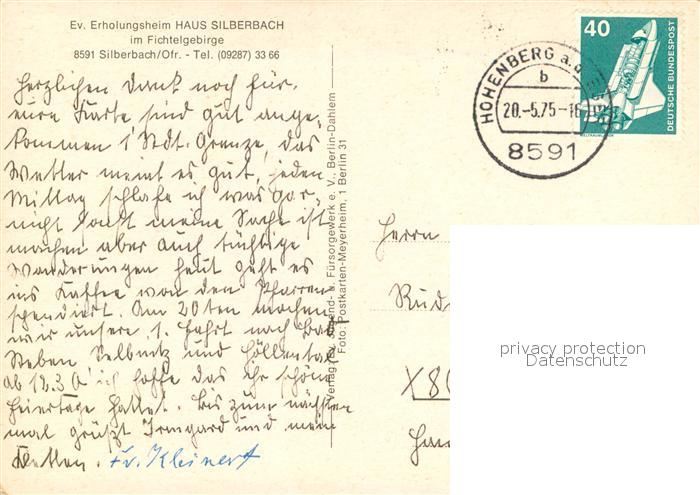 Ev. Erholungsheim HAUS SILBERBACH
im Fichtelgebirge
8591 Silberbach/Ofr. - Tel. (09287) 33 66
Herzlichen Dank noch für
eure Karte sind gut ange-
kommen 1 Stdt. Grenze, das
Wetter meint es gut, jeden
Mittag schlafe ich was gar
nicht sonst meine Sache ist
machen aber auch tüchtige
Wanderungen heut geht es
ins Kaffee von den Pfarrern
spendiert. Am 20ten machen
wir unsere 1. Fahrt nach Bad
Steben Selbnitz und Höllental
ab 12.30 ich hoffe das ihr schöne
Feiertage hattet. Bis zum nächsten
mal grüßt Irmgard und mein
Fr. Kleinert
Verlag: Ev. Jugend- u. Fürsorgewerk e. V., Berlin-Dahlem
Foto: Postkarten-Meyerheim, 1 Berlin 31
HOHENBERG a.d.
b
20.-5.75-16
8591
40
DEUTSCHE BUNDESPOST
Herrn
privacy protection
Datenschutz